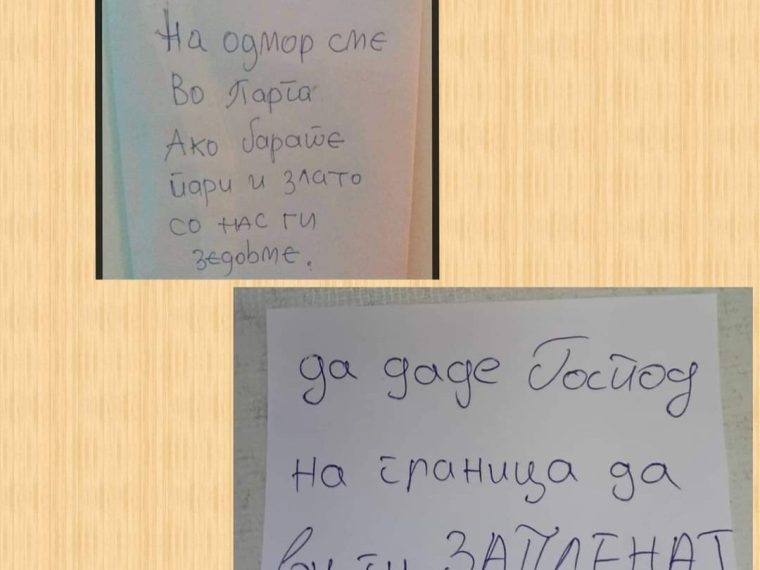 На одмор сме
Во Парга
Ако барате
пари и злато
со нас ги
зедовме.
да даде Господ
на граница да
ви ги ЗАПЛЕНАТ